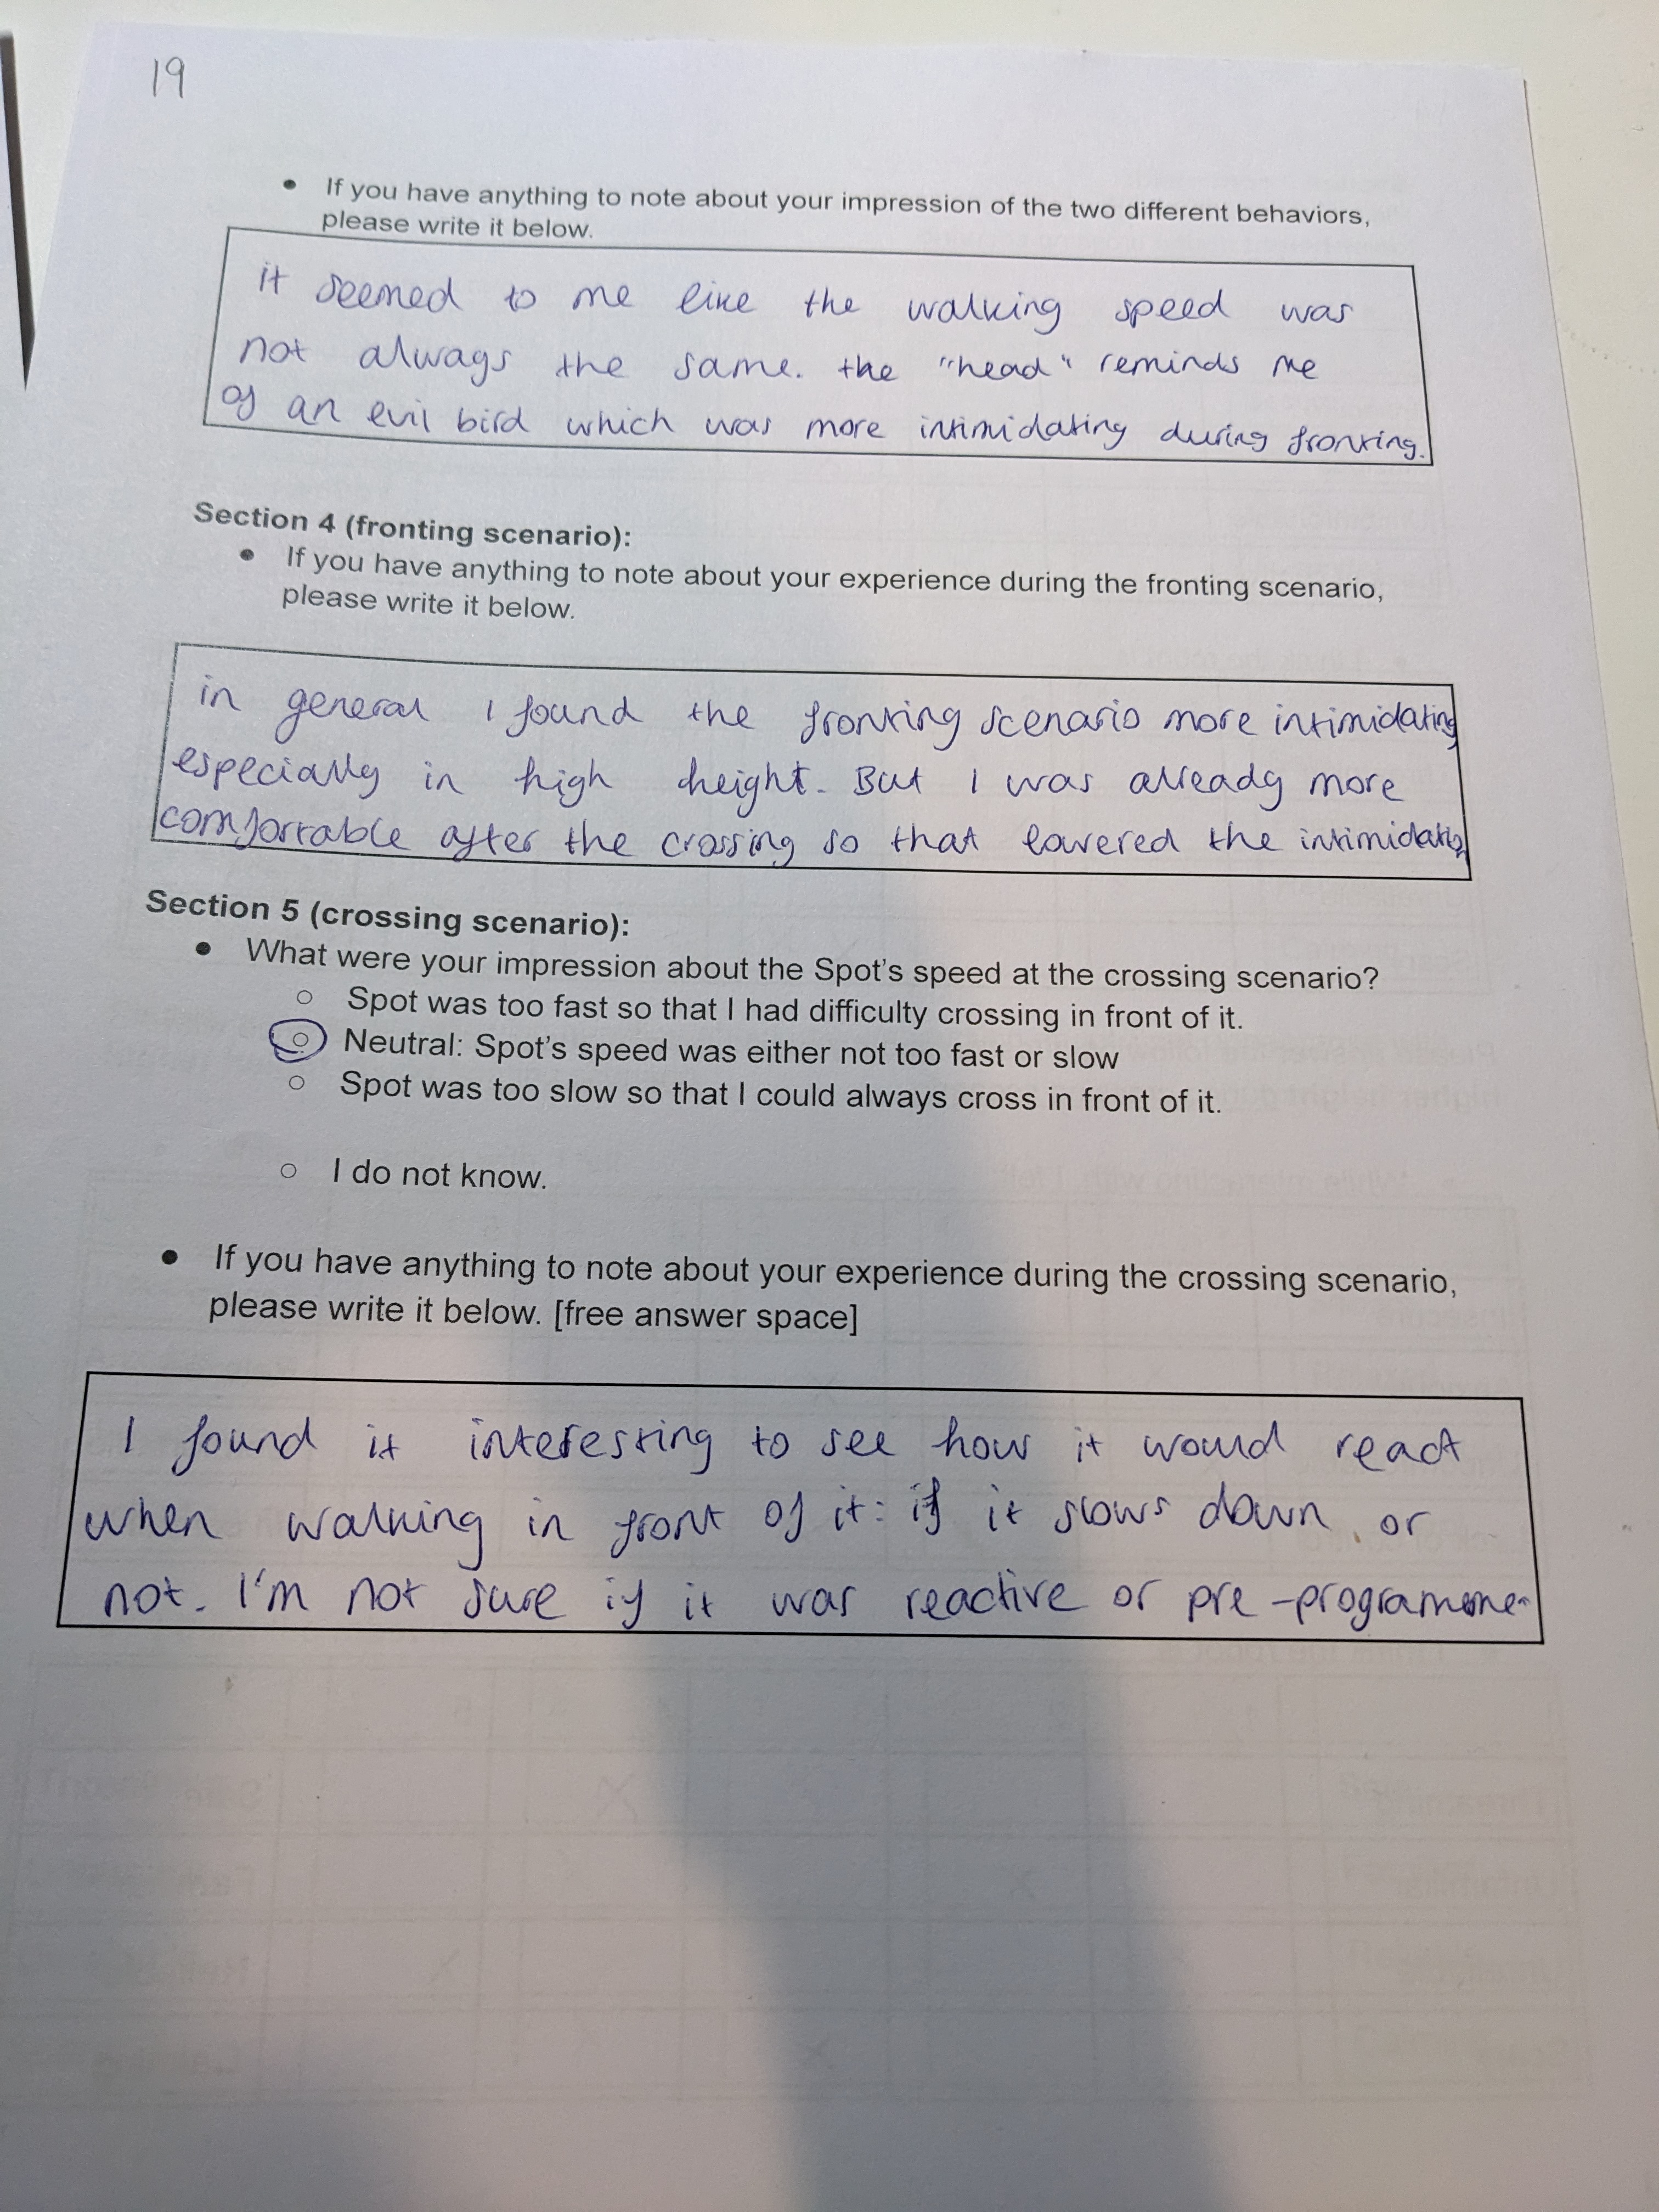 19
• If you have anything to note about your impression of the two different behaviors,
please write it below.
it seemed to me like the walking speed was
not always the same. the "head" reminds me
of an evil bird which was more intimidating during fronting.
Section 4 (fronting scenario):
• If you have anything to note about your experience during the fronting scenario,
please write it below.
in general I found the fronting scenario more intimidating
especially in high height. But I was already more
comfortable after the crossing so that lowered the
Section 5 (crossing scenario):
• What were your impression about the Spot's speed at the crossing scenario?
○ Spot was too fast so that I had difficulty crossing in front of it.
○ Neutral: Spot's speed was either not too fast or slow
○ Spot was too slow so that I could always cross in front of it.
○ I do not know.
• If you have anything to note about your experience during the crossing scenario,
please write it below. [free answer space]
I found it interesting to see how it would react
when walking in front of it: if it slows down or
not. I'm not sure if it was reactive or